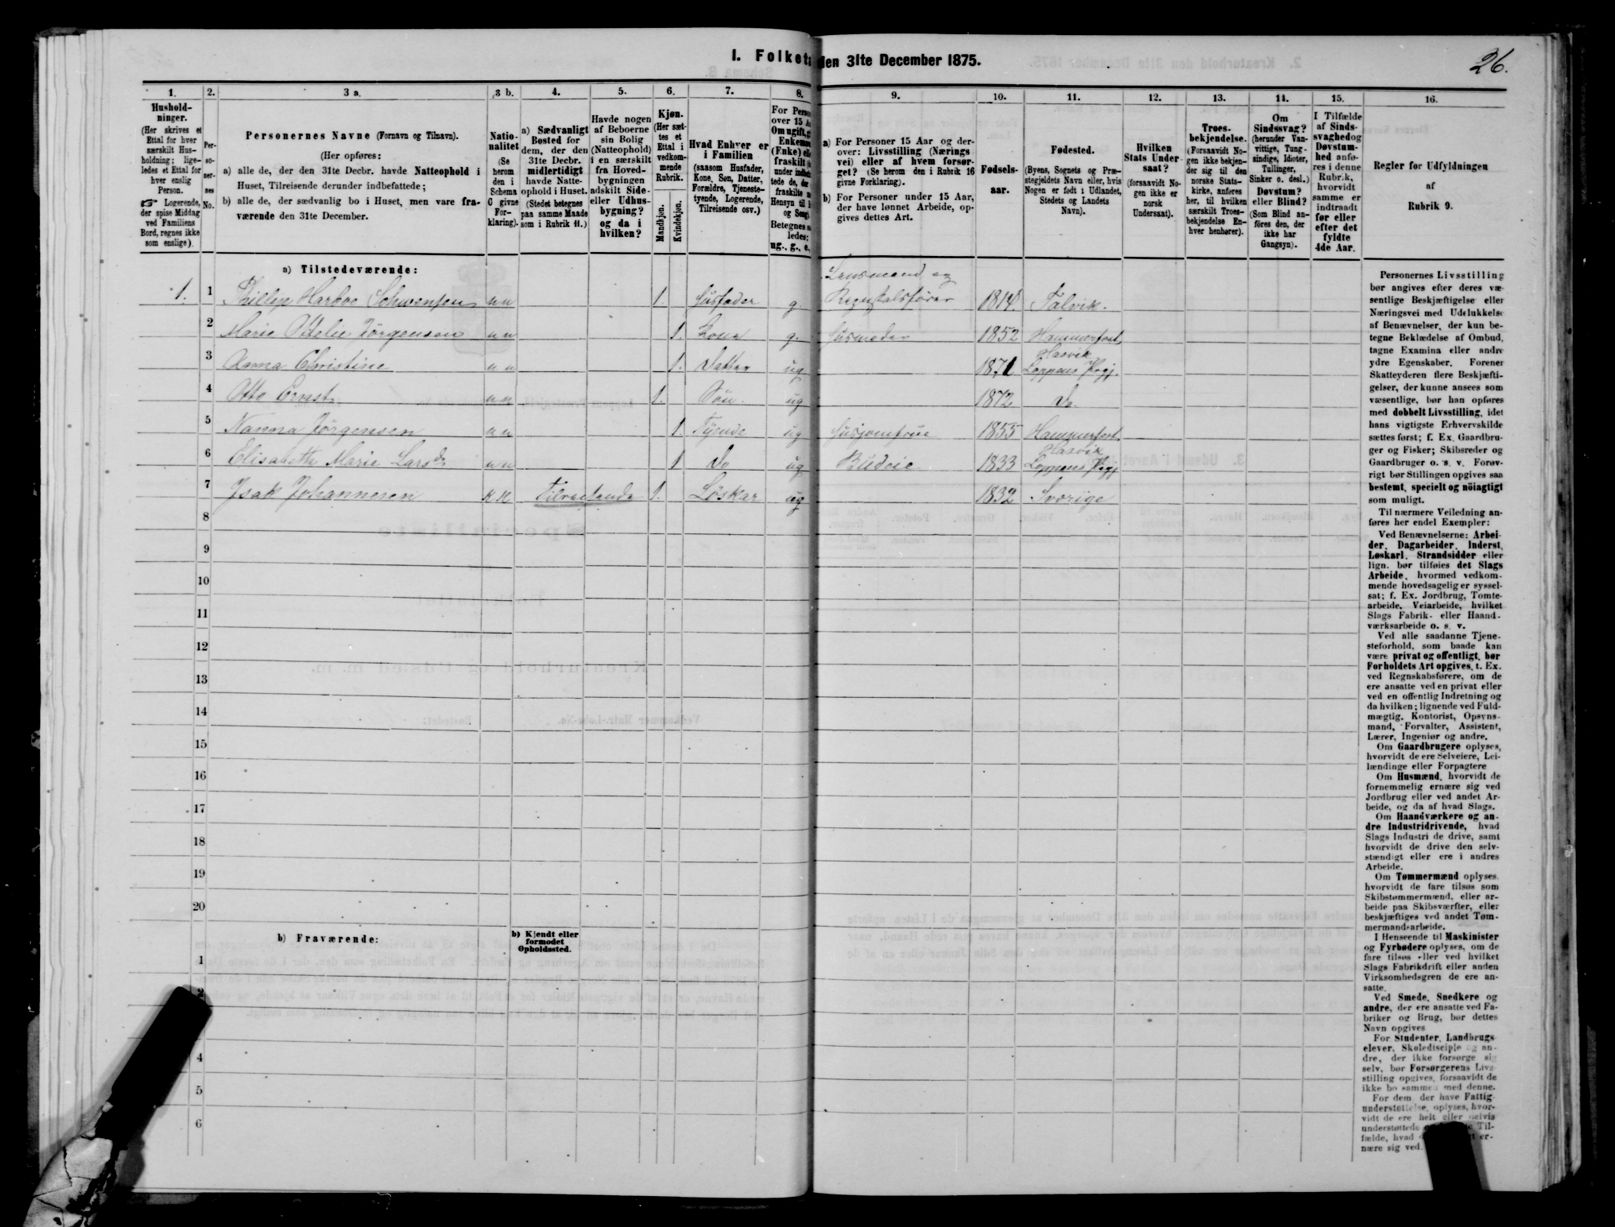 I. Folket den 31te December 1875.
26.
1. 2. 3 a. 3 b. 4. 5. 6. 7. 8. 9. 10. 11. 12. 13. 14. 15. 16.
Hushold-
ninger.
(Her skrives et
Ettal for hver
særskilt Hus-
holdning; lige-
ledes et Ettal for
hver enslig
Person.
☞ Logerende,
der spise Middag
ved Familiens
Bord, regnes ikke
som enslige).
Per-
so-
ner-
nes
No.
Personernes Navne (Fornavn og Tilnavn).
(Her opføres:
a) alle de, der den 31te Decbr. havde Natteophold i
Huset, Tilreisende derunder indbefattede;
b) alle de, der sædvanlig bo i Huset, men vare fra-
værende den 31te December.
Natio-
nalitet
(Se
herom
den i
Schema
C givne
For-
klaring).
a) Sædvanligt
Bosted for
dem, der den
31te Decbr.
midlertidigt
havde Natte-
ophold i Huset.
(Stedet betegnes
paa samme Maade
som i Rubrik 11.)
Havde nogen
af Beboerne
sin Bolig
(Natteophold)
i en særskilt
fra Hoved-
bygningen
adskilt Side-
eller Udhus-
bygning?
og da i
hvilken?
Kjøn.
(Her sæt-
tes et
Ettal i
vedkom-
mende
Rubrik.
Mandkjøn.
Kvindekjøn.
Hvad Enhver er
i Familien
(saasom Husfader,
Kone, Søn, Datter,
Forældre, Tjeneste-
tyende, Logerende,
Tilreisende osv.)
For Perso
over 15 A
Om ugift, g
Enkem
(Enke) el
fraskilt
under indb
tede de, der
fraskilte
Hensyn til
og Seng
Betegnes
ledes:
ug., g., e.
a) For Personer 15 Aar og der-
over: Livsstilling (Nærings
vei) eller af hvem forsør-
get? (Se herom den i Rubrik 16
givne Forklaring).
b) For Personer under 15 Aar,
der have lønnet Arbeide, op-
gives dettes Art.
Fødsels-
aar.
Fødested.
(Byens, Sognets og Præ-
stegjeldets Navn eller, hvis
Nogen er født i Udlandet,
Stedets og Landets
Navn).
Hvilken
Stats Under-
saat?
(forsaavidt No-
gen ikke er
norsk
Undersaat).
Troes-
bekjendelse.
(Forsaavidt No-
gen ikke bekjen-
der sig til den
norske Stats-
kirke, anføres
her, til hvilken
særskilt Troes-
bekjendelse En-
hver henhører).
Om
Sindssvag?
(herunder Van-
vittige, Tung-
sindige, Idioter,
Tullinger,
Sinker o. desl.)
Døvstum?
eller Blind?
(Som Blind an-
føres den, der
ikke har
Gangsyn).
I Tilfælde
af Sinds-
svaghed og
Døvstum-
hed anfø-
res i denne
Rubrik,
hvorvidt
samme er
indtraadt
før eller
efter det
fyldte
4de Aar.
Regler for Udfyldningen
af
Rubrik 9.
a) Tilstedeværende:
Lensmand og
1. 1 Phillip Harboe Schwensen n n 1. Husfader g. Regnskabsfører 1814. Talvik.
2 Marie Odelie Jørgensen n n 1. Kone g. Husmoder 1852 Hammerfest,
Hasvik
3 Anna Christine n n 1. Datter ug 1871 Loppens Prgj.
4 Otto Ernst n n 1. Søn. ug 1872 Do.
5 Nanna Jørgensen n n 1. Tyende ug Husjomfrue 1855 Hammerfest.
Hasvik
6 Elisabeth Marie Larsdr n n 1 Do ug Budeie 1833 Loppens Prgj
7 Isak Johannesen Tilreisende 1. Løskar ug 1832 Sverige
8
9
10
11
12
13
14
15
16
17
18
19
20
b) Fraværende:
b) Kjendt eller
formodet
Opholdssted.
1
2
4
5
6
Personernes Livsstilling
bør angives efter deres væ-
sentlige Beskjæftigelse eller
Næringsvei med Udelukkelse
af Benævnelser, der kun be-
tegne Beklædelse af Ombud,
tagne Examina eller andre
ydre Egenskaber. Forener
Skatteyderen flere Beskjæfti-
gelser, der kunne ansees som
væsentlige, bør han opføres
med dobbelt Livsstilling, idet
hans vigtigste Erhvervskilde
sættes først; f. Ex. Gaardbru-
ger og Fisker; Skibsreder og
Gaardbruger o. s. v. Forøv-
rigt bør Stillingen opgives saa
bestemt, specielt og nöiagtigt
som muligt.
Til nærmere Veiledning an-
føres her endel Exempler:
Ved Benævnelserne: Arbei-
der, Dagarbeider, Inderst,
Løskarl, Strandsidder eller
lign. bør tilføies det Slags
Arbeide, hvormed vedkom-
mende hovedsagelig er syssel-
sat; f. Ex. Jordbrug, Tomte-
arbeide, Veiarbeide, hvilket
Slags Fabrik- eller Haand-
værksarbeide o. s. v.
Ved alle saadanne Tjene-
steforhold, som baade kan
være privat og offentligt, bør
Forholdets Art opgives, t. Ex.
ved Regnskabsførere, om de
ere ansatte ved en privat eller
ved en offentlig Indretning og
da hvilken; lignende ved Fuld-
mægtig, Kontorist, Opsyns-
mand, Forvalter, Assistent,
Lærer, Ingeniør og andre.
Om Gaardbrugere oplyses,
hvorvidt de ere Selveiere, Lei-
lændinge eller Forpagtere
Om Husmænd, hvorvidt de
fornemmelig ernære sig ved
Jordbrug eller ved andet Ar-
beide, og da af hvad Slags.
Om Haandværkere og an-
dre Industridrivende, hvad
Slags Industri de drive, samt
hvorvidt de drive den selv-
stændigt eller ere i andres
Arbeide.
Om Tømmermænd oplyses,
hvorvidt de fare tilsøs som
Skibstømmermænd, eller ar-
beide paa Skibsværfter, eller
beskjæftiges ved andet Tøm-
mermandsarbeide.
I Henseende til Maskinister
og Fyrbødere oplyses, om de
fare tilsøs eller ved hvilket
Slags Fabrikdrift eller anden
Virksomhedsgren de ere an-
satte.
Ved Smede, Snedkere og
andre, der ere ansatte ved Fa-
briker og Brug, bør dettes
Navn opgives
For Studenter, Landbrugs
elever, Skoledisciple og an-
dre, der ikke forsørge sig
selv, bør Forsørgerens Livs-
stilling opgives, forsaavidt de
ikke bo sammen med denne.
For dem, der have Fattig-
understøttelse, oplyses, hvor-
vidt de ere helt eller delvis
understøttede Til-
fælde, hvad er-
nære sig ved.